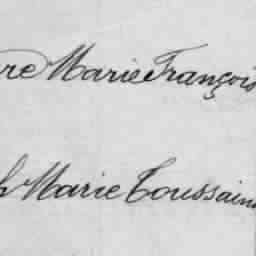 re Marie François
h Marie Toussain